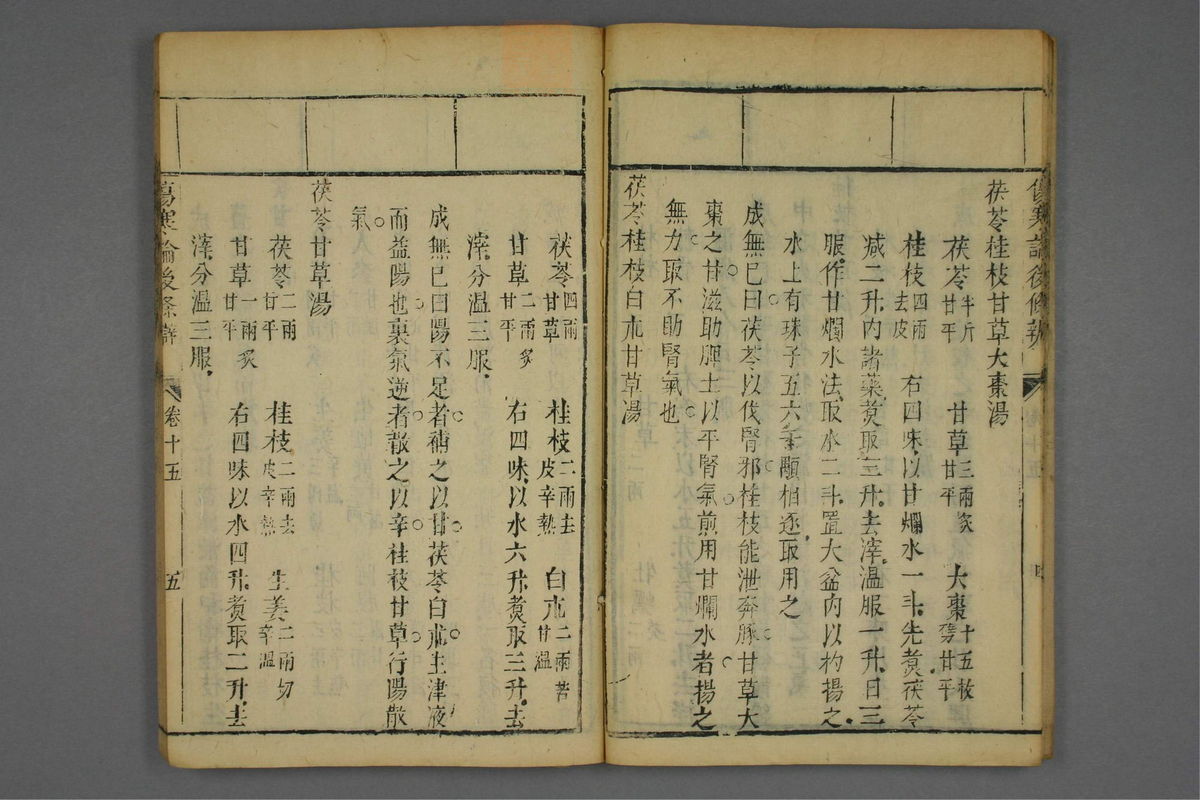 傷寒論後條辨
茯苓桂枝甘草大棗湯
茯苓半斤甘平 甘草三兩炙甘平 大棗十五枚劈甘平
桂枝四兩去皮 右四味以甘爛水一斗先煑茯苓
减二升内諸藥煑取三升去滓溫服一升日三
服作甘爛水法取水二斗置大盆内以杓揚之
水上有珠子五六千顆相逐取用之
成無已曰茯苓以伐腎邪桂枝能泄奔豚甘草大
棗之甘滋助脾土以平腎氣煎用甘爛水者揚之
無力取不助腎氣也
茯苓桂枝白朮甘草湯
茯苓四兩甘草 桂枝二兩去皮辛熱 白朮二兩苦甘溫
甘草二兩炙甘平 右四味以水六升煑取三升去
滓分溫三服
成無已曰陽不足者補之以甘茯苓白朮主津液
而益陽也裏氣逆者散之以辛桂枝甘草行陽散
氣
茯苓甘草湯
茯苓二兩甘平 桂枝二兩去皮辛熱 生姜二兩切辛溫
甘草一兩炙甘平 右四味以水四升煑取二升去
滓分溫三服
傷寒論後條辨 卷十五 五